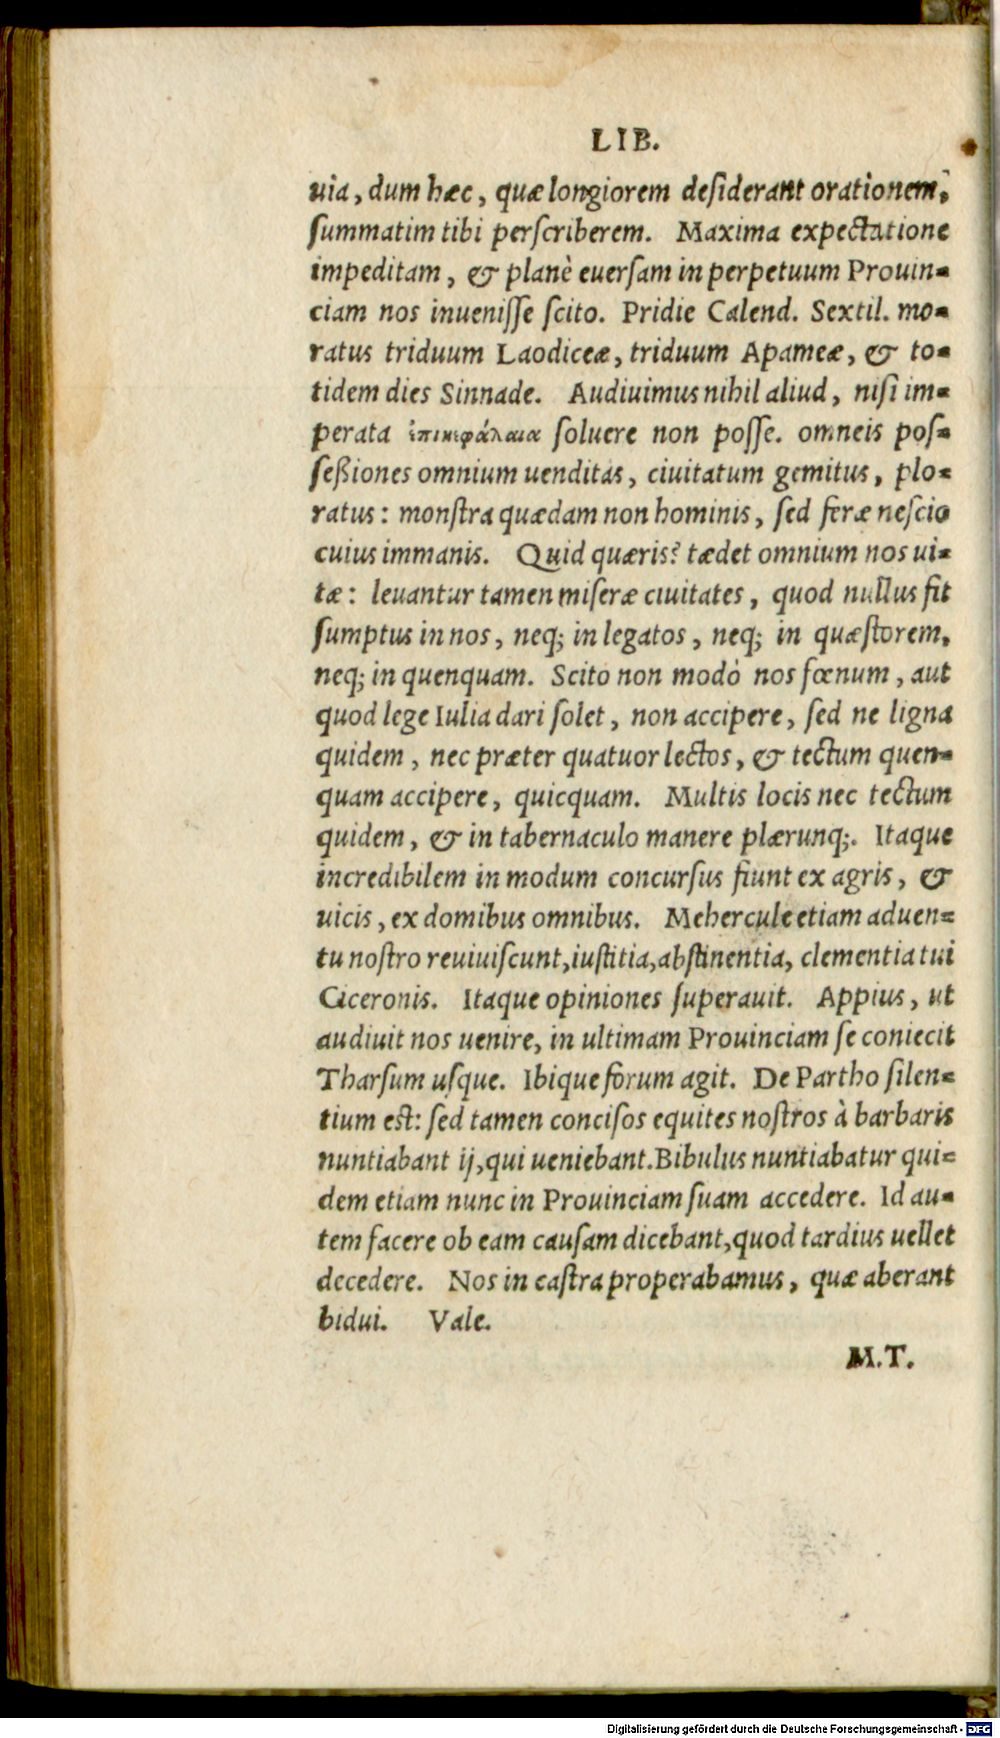 LIB.
uia, dum hæc, quæ longiorem desiderant orationem,
summatim tibi perscriberem. Maxima expectatione
impeditam, & planè euersam in perpetuum Prouin-
ciam nos inuenisse scito. Pridie Calend. Sextil. mo-
ratus triduum Laodiceæ, triduum Apameæ, & to-
tidem dies Sinnade. Audiuimus nihil aliud, nisi im-
perata ἐπικεφάλαια soluere non posse. omneis pos-
seßiones omnium uenditas, ciuitatum gemitus, plo-
ratus: monstra quædam non hominis, sed feræ nescio
cuius immanis. Quid quæris? tædet omnium nos ui-
tæ: leuantur tamen miseræ ciuitates, quod nullus fit
sumptus in nos, neq; in legatos, neq; in quæstorem,
neq; in quenquam. Scito non modò nos fœnum, aut
quod lege Iulia dari solet, non accipere, sed ne ligna
quidem, nec præter quatuor lectos, & tectum quen-
quam accipere, quicquam. Multis locis nec tectum
quidem, & in tabernaculo manere plærunq;. Itaque
incredibilem in modum concursus fiunt ex agris, &
uicis, ex domibus omnibus. Mehercule etiam aduen-
tu nostro reuiuiscunt, iustitia, abstinentia, clementia tui
Ciceronis. Itaque opiniones superauit. Appius, ut
audiuit nos uenire, in ultimam Prouinciam se coniecit
Tharsum usque. Ibique forum agit. De Partho silen-
tium est: sed tamen concisos equites nostros à barbaris
nuntiabant ij, qui ueniebant. Bibulus nuntiabatur qui-
dem etiam nunc in Prouinciam suam accedere. Id au-
tem facere ob eam causam dicebant, quod tardius uellet
decedere. Nos in castra properabamus, quæ aberant
bidui. Vale.
M.T.
Digitalisierung gefördert durch die Deutsche Forschungsgemeinschaft - DFG